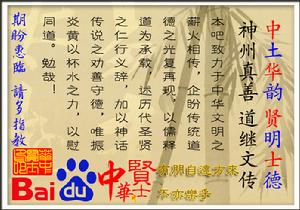 中土华韵 贤明士德
神州真善 道继文传
本吧致力于中华文明之
薪火相传，企盼传统道
德之光复再现。以儒释
道为承载，述历代圣贤
之仁行义辞，加以神话
传说之劝善守德，唯振
炎黄以杯水之力，以慰
同道。勉哉！
期盼惠临 请多指教
Bai du 中華賢士
有朋自遠方來
不亦樂乎